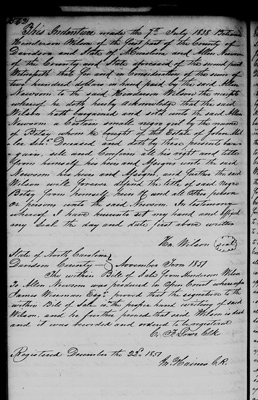 This Indenture made the 7th July 1838 Between
Henderson Wilson of the first part of the County of
Davidson and State of N Carolina and Allen Newsom
of the County and State aforesaid of the second part
Witnesseth that for and in Consideration of the sum of
hundred dollars in hand paid by the said Allen
Newsom to the said Henderson Wilson the receipt
whereof he doth hereby acknowledge that the said
Wilson hath bargained and sold unto the said Allen
Newsom a Certain negro girl by the name
of Betsy whom he bought of the Estate of John
Deceased and doth by these presents bar-
gain sell and Confirm all his right and title
from himself his heirs and Assigns unto the said
Newsom his heirs and Assigns, and further the said
Wilson will forever defend the title of said Negro
Betsy from himself heirs and all other person
or persons unto the said Newsom. In testimony
whereof I have hereunto set my hand and affixed
my Seal the day and date first above written
Wilson seal
State of North Carolina
Davidson County November Term 1851
The within Bill of Sale from Henderson Wilson
To Allen Newsom was produced in Open Court whereupon
James Wiseman Esqr. proved that the signature to the
within Bill of Sale is the proper hand writing of said
Wilson, and he further proved that said Wilson is dead
and it was recorded and ordered to be registered
C. F. Lowe Clk
Registered December the 22d. 1851